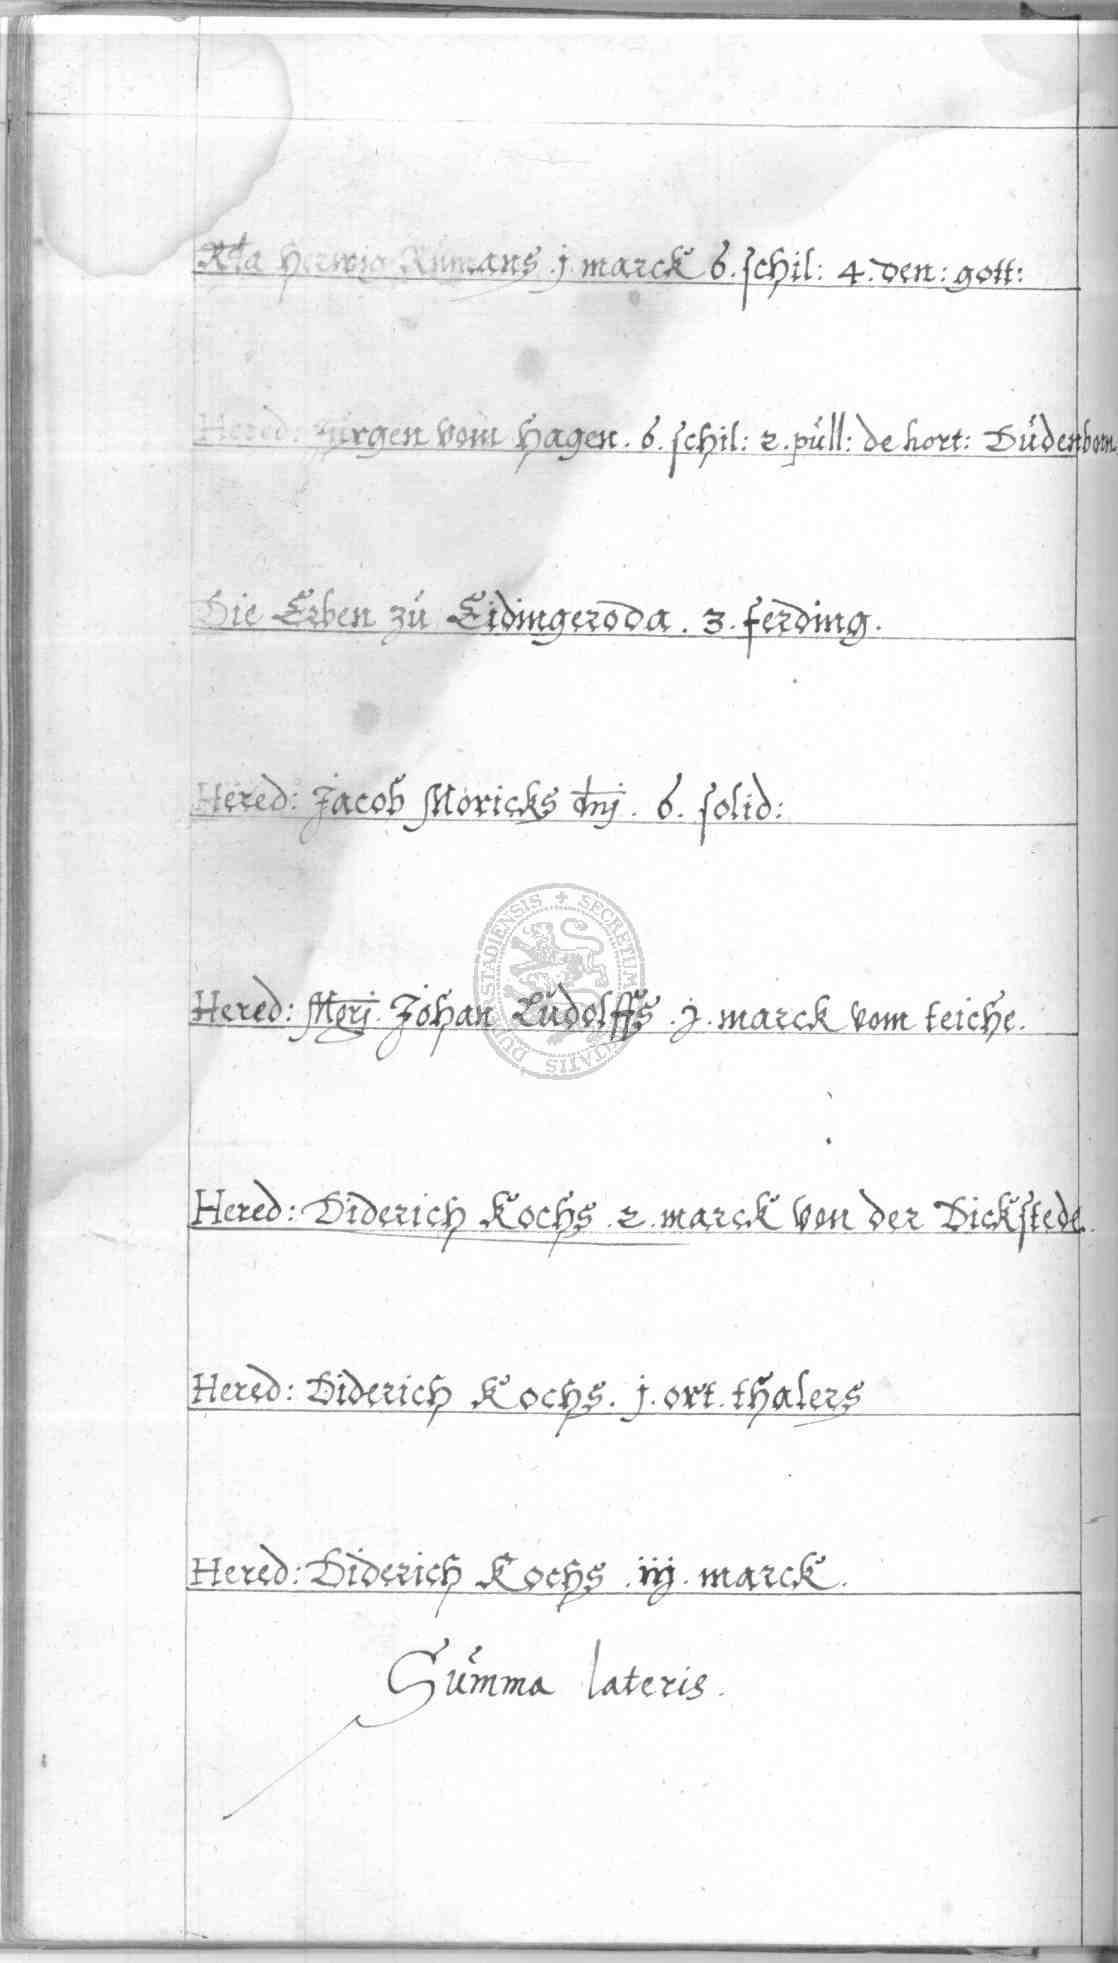 Rta Herwig Rumans . j . marck 6 . schil : 4 . den : gott :
Hered : Jürgen vom Hagen . 6 . schil : 2 . püll : de hort : Düdenborn
Die Erben zü Eidingeroda . 3 . ferding .
Hered : Jacob Moricks dnj . 6 . solid :
Hered : Mgrj . Johan Lüdolffs . j . marck vom teiche .
Hered : Diderich Kochs . 2 . marck von der Dickstede .
Hered : Diderich Kochs . j . ort . thalers
Hered : Diderich Kochs . iij . marck .
Sümma lateris .
SECRETUM DUDERSTADIENSIS